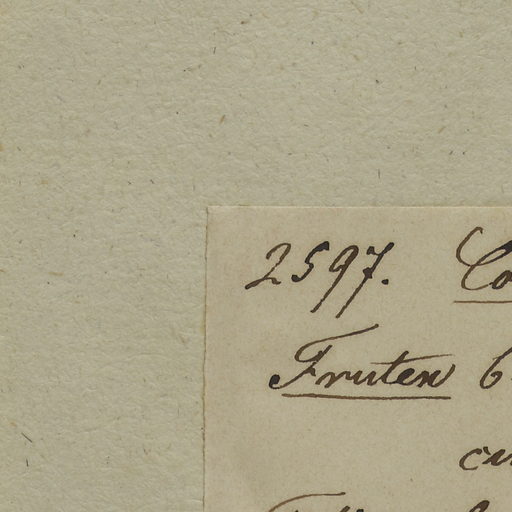 2597. Co
Frutex 6
cu